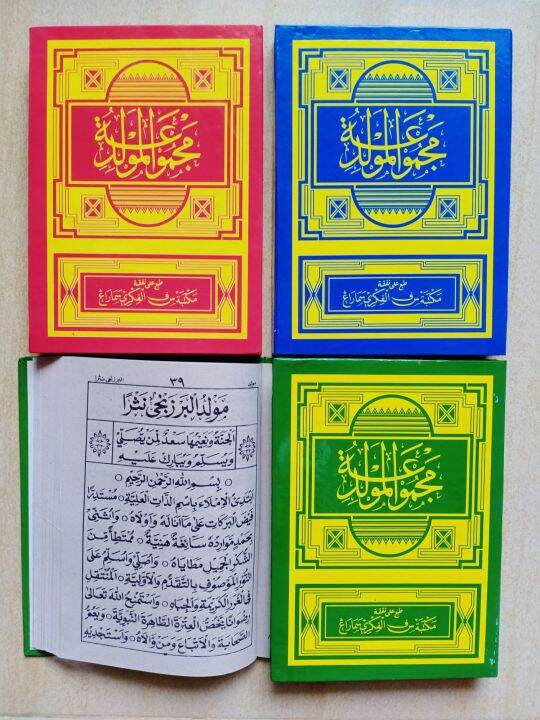 مجموعة المولد
طبع على نفقة
مكتبة س ف الفكري سماراغ
مجموعة المولد
طبع على نفقة
مكتبة س ف الفكري سماراغ
مولد ٣٩ البرزنجي نثرا
مَوْلِدُ الْبَرْزَنْجِي نَثْرًا
اَلْجَنَّةُ وَنَعِيْمُهَا سَعْدٌ لِمَنْ يُصَلِّيْ
وَيُسَلِّمُ وَيُبَارِكُ عَلَيْهِ
○ بِسْمِ اللهِ الرَّحْمٰنِ الرَّحِيْمِ ○
اَبْتَدِئُ الْاِمْلَاءَ بِاسْمِ الذَّاتِ الْعَلِيَّةِ ○ مُسْتَدِرًّا
فَيْضَ الْبَرَكَاتِ عَلَى مَا اَنَالَهُ وَاَوْلَاهُ ○ وَاُثَنِّيْ
بِحَمْدٍ مَوَارِدُهُ سَائِغَةٌ هَنِيَّةٌ ○ مُمْتَطِيًا مِنَ
الشُّكْرِ الْجَمِيْلِ مَطَايَاهُ ○ وَاُصَلِّيْ وَاُسَلِّمُ عَلَى
النُّوْرِ الْمَوْصُوْفِ بِالتَّقَدُّمِ وَالْاَوَّلِيَّةِ ○ الْمُنْتَقِلِ
فِى الْغُرَرِ الْكَرِيْمَةِ وَالْجِبَاهِ ○ وَاَسْتَمْنِحُ اللهَ تَعَالَى
رِضْوَانًا يَخُصُّ الْعِتْرَةَ الطَّاهِرَةَ النَّبَوِيَّةَ ○ وَيَعُمُّ
الصَّحَابَةَ وَالْاَتْبَاعَ وَمَنْ وَالَاهُ ○ وَاَسْتَجْدِيْهِ
مجموعة المولد
طبع على نفقة
مكتبة س ف الفكري سماراغ